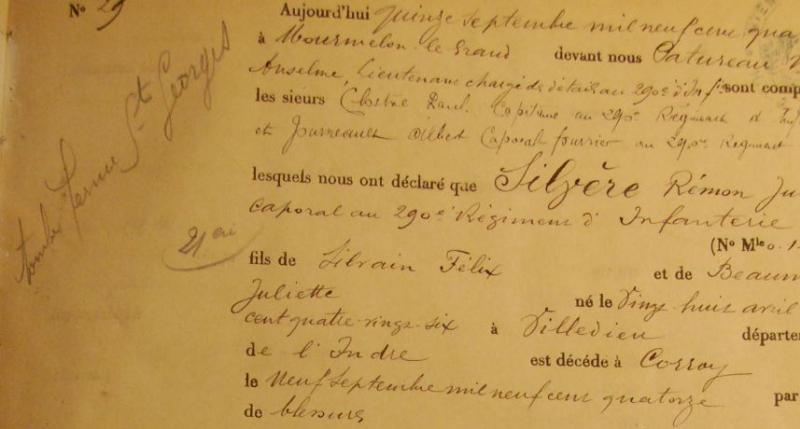 N° 29
Aujourd'hui quinze septembre mil neuf cent qua
à Mourmelon-le-Grand devant nous Catureau
Anselme, Lieutenant chargé des détails au 290e d'Inf sont comp
les sieurs Clostre Paul, Capitaine au 290e Régiment d'Inf
et Jouvreault Albert Caporal fourrier au 290e Régiment
lesquels nous ont déclaré que Silvère Rémon Ju
caporal au 290e Régiment d'Infanterie
(N° Mle 0.1
fils de Silvain Félix et de Beaum
Juliette né le Vingt huit avril
cent quatre-vingt-six à Villedieu départe
de l'Indre est décédé à Corroy
le Neuf septembre mil neuf cent quatorze par
de blessures
tombe Ferme St Georges
21 ai